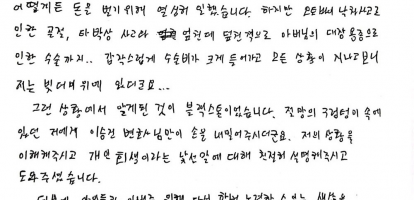 어떻게든 돈을 벌기위해 열심히 일했습니다. 하지만 오토바이 낙하사고로
인한 골절, 타박상 사고와 엎친데 덮친격으로 아버님의 대장용종으로
인한 수술까지.. 갑작스럽게 수술비가 크게 들어가고 모든 상황이 지나고보니
저는 빚더미위에 있더군요...
그런 상황에서 알게된 것이 블랙스톤이었습니다. 절망의 구렁텅이 속에
있던 저에게 이승진 변호사님만이 손을 내밀어주시더군요. 저의 상황을
이해해주시고 개인회생이라는 낯선일에 대해 친절히 설명해주시고
도와주셨습니다.
위해 다시 한번